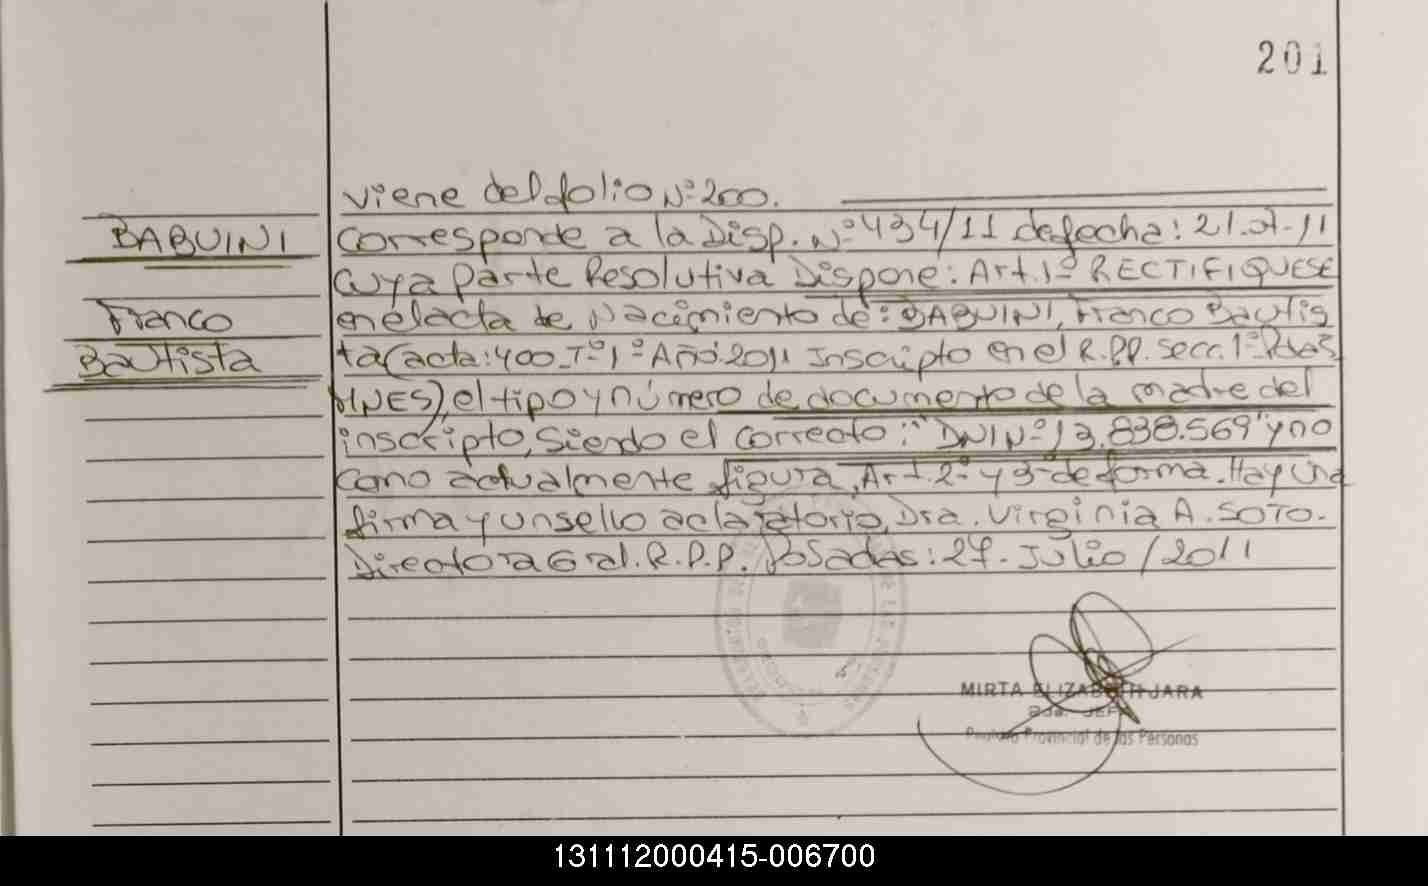 201
viene del folio Nº 200.
BABUINI
Corresponde a la Disp. Nº 434/11 de fecha: 21.07.11
cuya parte Resolutiva Dispone: Art. 1º RECTIFIQUESE
Franco
en el acta de Nacimiento de: BABUINI, Franco Bautis
Bautista
ta (acta: 400 Tº 1º Año 2011 Inscripto en el R.P.P. Secc. 1º Pdas
MNES), el tipo y número de documento de la madre del
inscripto, siendo el correcto: "DNI Nº 13.838.569" y no
como actualmente figura, Art. 2º y 3º de forma. Hay una
firma y un sello aclaratorio, Dra. Virginia A. SOTO.
Directora Gral. R.P.P. Posadas: 27. Julio / 2011
MIRTA ELIZABETH JARA
Provincial de las Personas
131112000415-006700